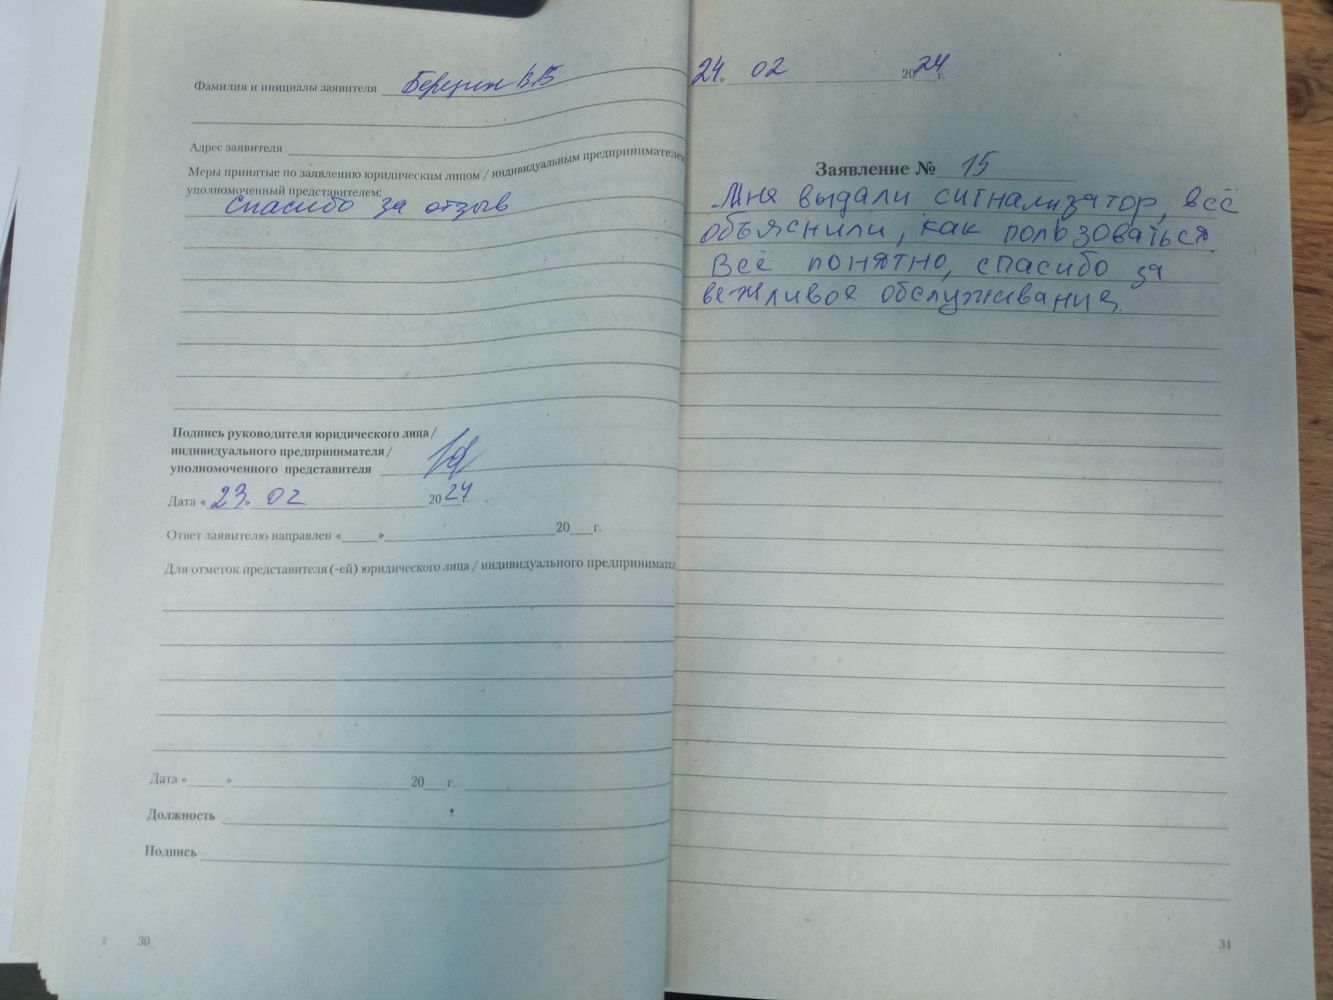 Фамилия и инициалы заявителя Березин В.Б
Адрес заявителя
Меры принятые по заявлению юридическим лицом / индивидуальным предпринимателем
уполномоченный представителем:
Спасибо за отзыв
Подпись руководителя юридического лица /
индивидуального предпринимателя /
уполномоченного представителя
Дата « 23 » 02 20 24 г.
Ответ заявителю направлен «____» 20___г.
Для отметок представителя (-ей) юридического лица / индивидуального предпринимат
Дата «____» 20___г.
Должность
Подпись
30
24. 02 20 24 г.
Заявление № 15
Мня выдали сигнализатор, всё
объяснили, как пользоваться
Всё понятно, спасибо за
вежливое обслуживание.
31